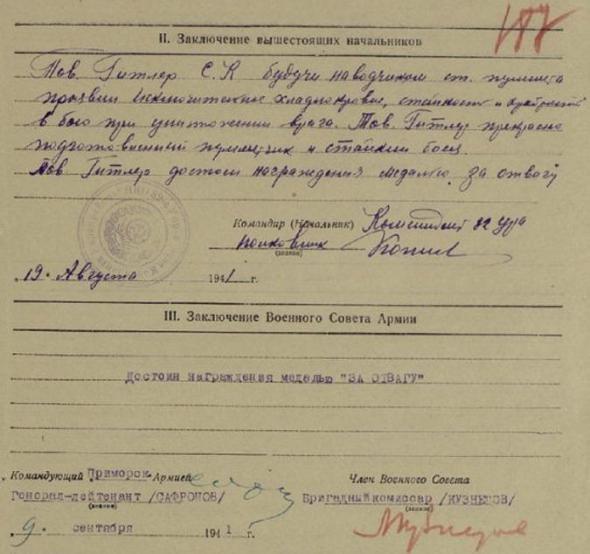 187
II. Заключение вышестоящих начальников
Тов. Гитлер С.К будучи наводчиком ст. пулемета
проявил исключительное хладнокровие, стойкость и храбрость
в бою при уничтожении врага. Тов. Гитлер прекрасно
подготовленный пулеметчик и стойкий боец.
Тов. Гитлер достоин награждения медалью за отвагу
Командир (Начальник) Комендант 82 Ура
полковник
(звание)
19. Августа 1941 г.
III. Заключение Военного Совета Армии
Достоин награждения медалью "ЗА ОТВАГУ"
Командующий Приморск. Армией
Член Военного Совета
Генерал-лейтенант /САФРОНОВ/
Бригадный комиссар /КУЗНЕЦОВ/
(звание)
(звание)
9. сентября 1941 г.